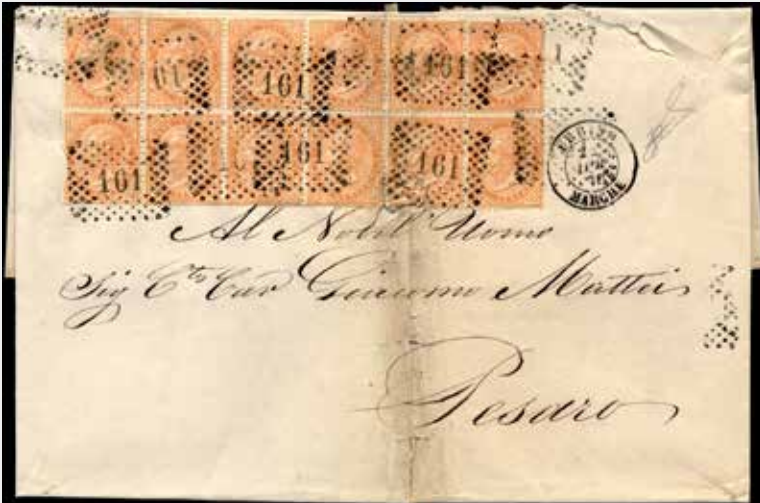 161
161
161
161
161
MARCHE
Al Nobil Uomo
Sig Cte Cav Giacomo Mattei
Pesaro